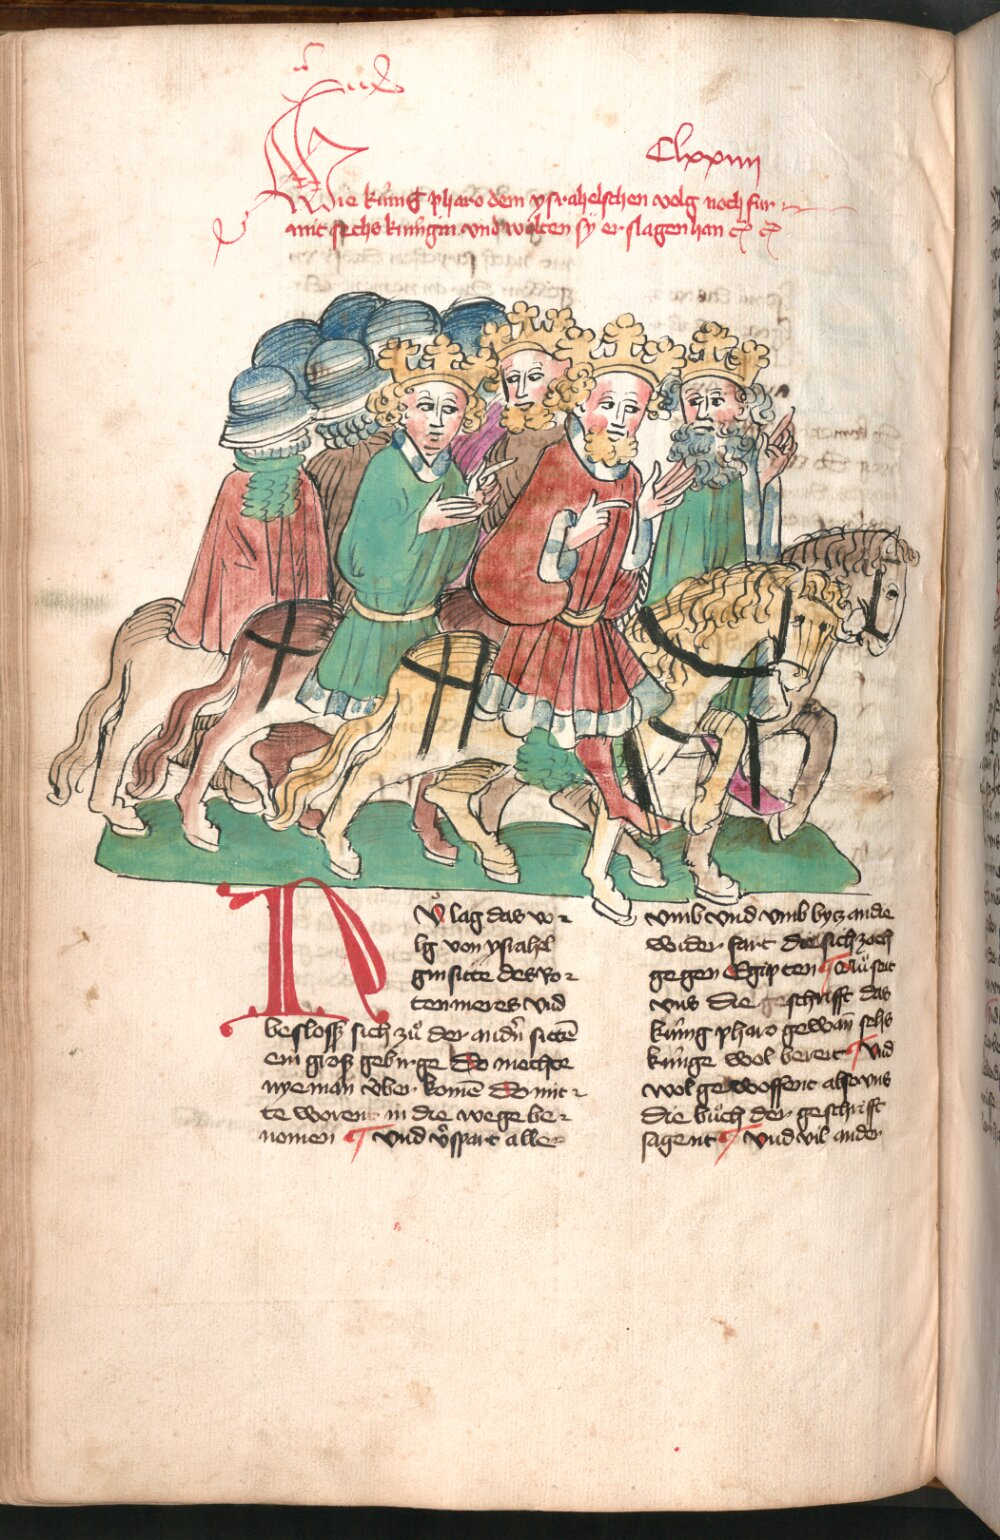 Clxxiiii
Wie kúnig pharo dem ysrahelschen volg noch fur
mit sechs kúngin vnd wolten sÿ erslagen han
Nů lag das vo-
lg von ysrahel
ginsitte des ro-
ten meres vnd
besloss sich zů der andn sitte
ein gros gebirge Do mechte
nyeman vber komē Do mit-
te woren in die wege be-
nomen vnd vspart aller
vmb vnd vmb bytz an de
wider fart die sich zoch
gegen Egipten Nů seit
vns die geschrifft das
kúnig pharo gewan sehs
kúnge wol bereit vnd
wol gewoffent also vns
die bůch der geschrifft
sagent vnd vil ander